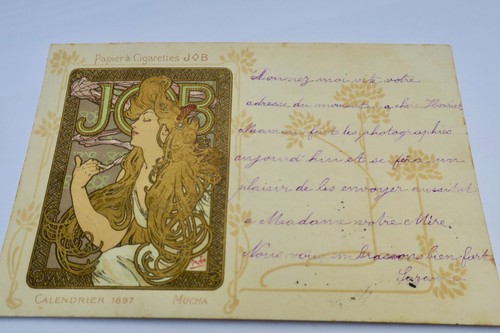 Papier à Cigarettes JOB
JOB
Mucha
CALENDRIER 1897 MUCHA
Donnez moi vite votre
adresse du moment, ma chère
Maman fait les photographies
aujourd'hui et se fera un
plaisir de les envoyer aussitôt
a Madame votre Mère.
Nous vous embrassons bien fort